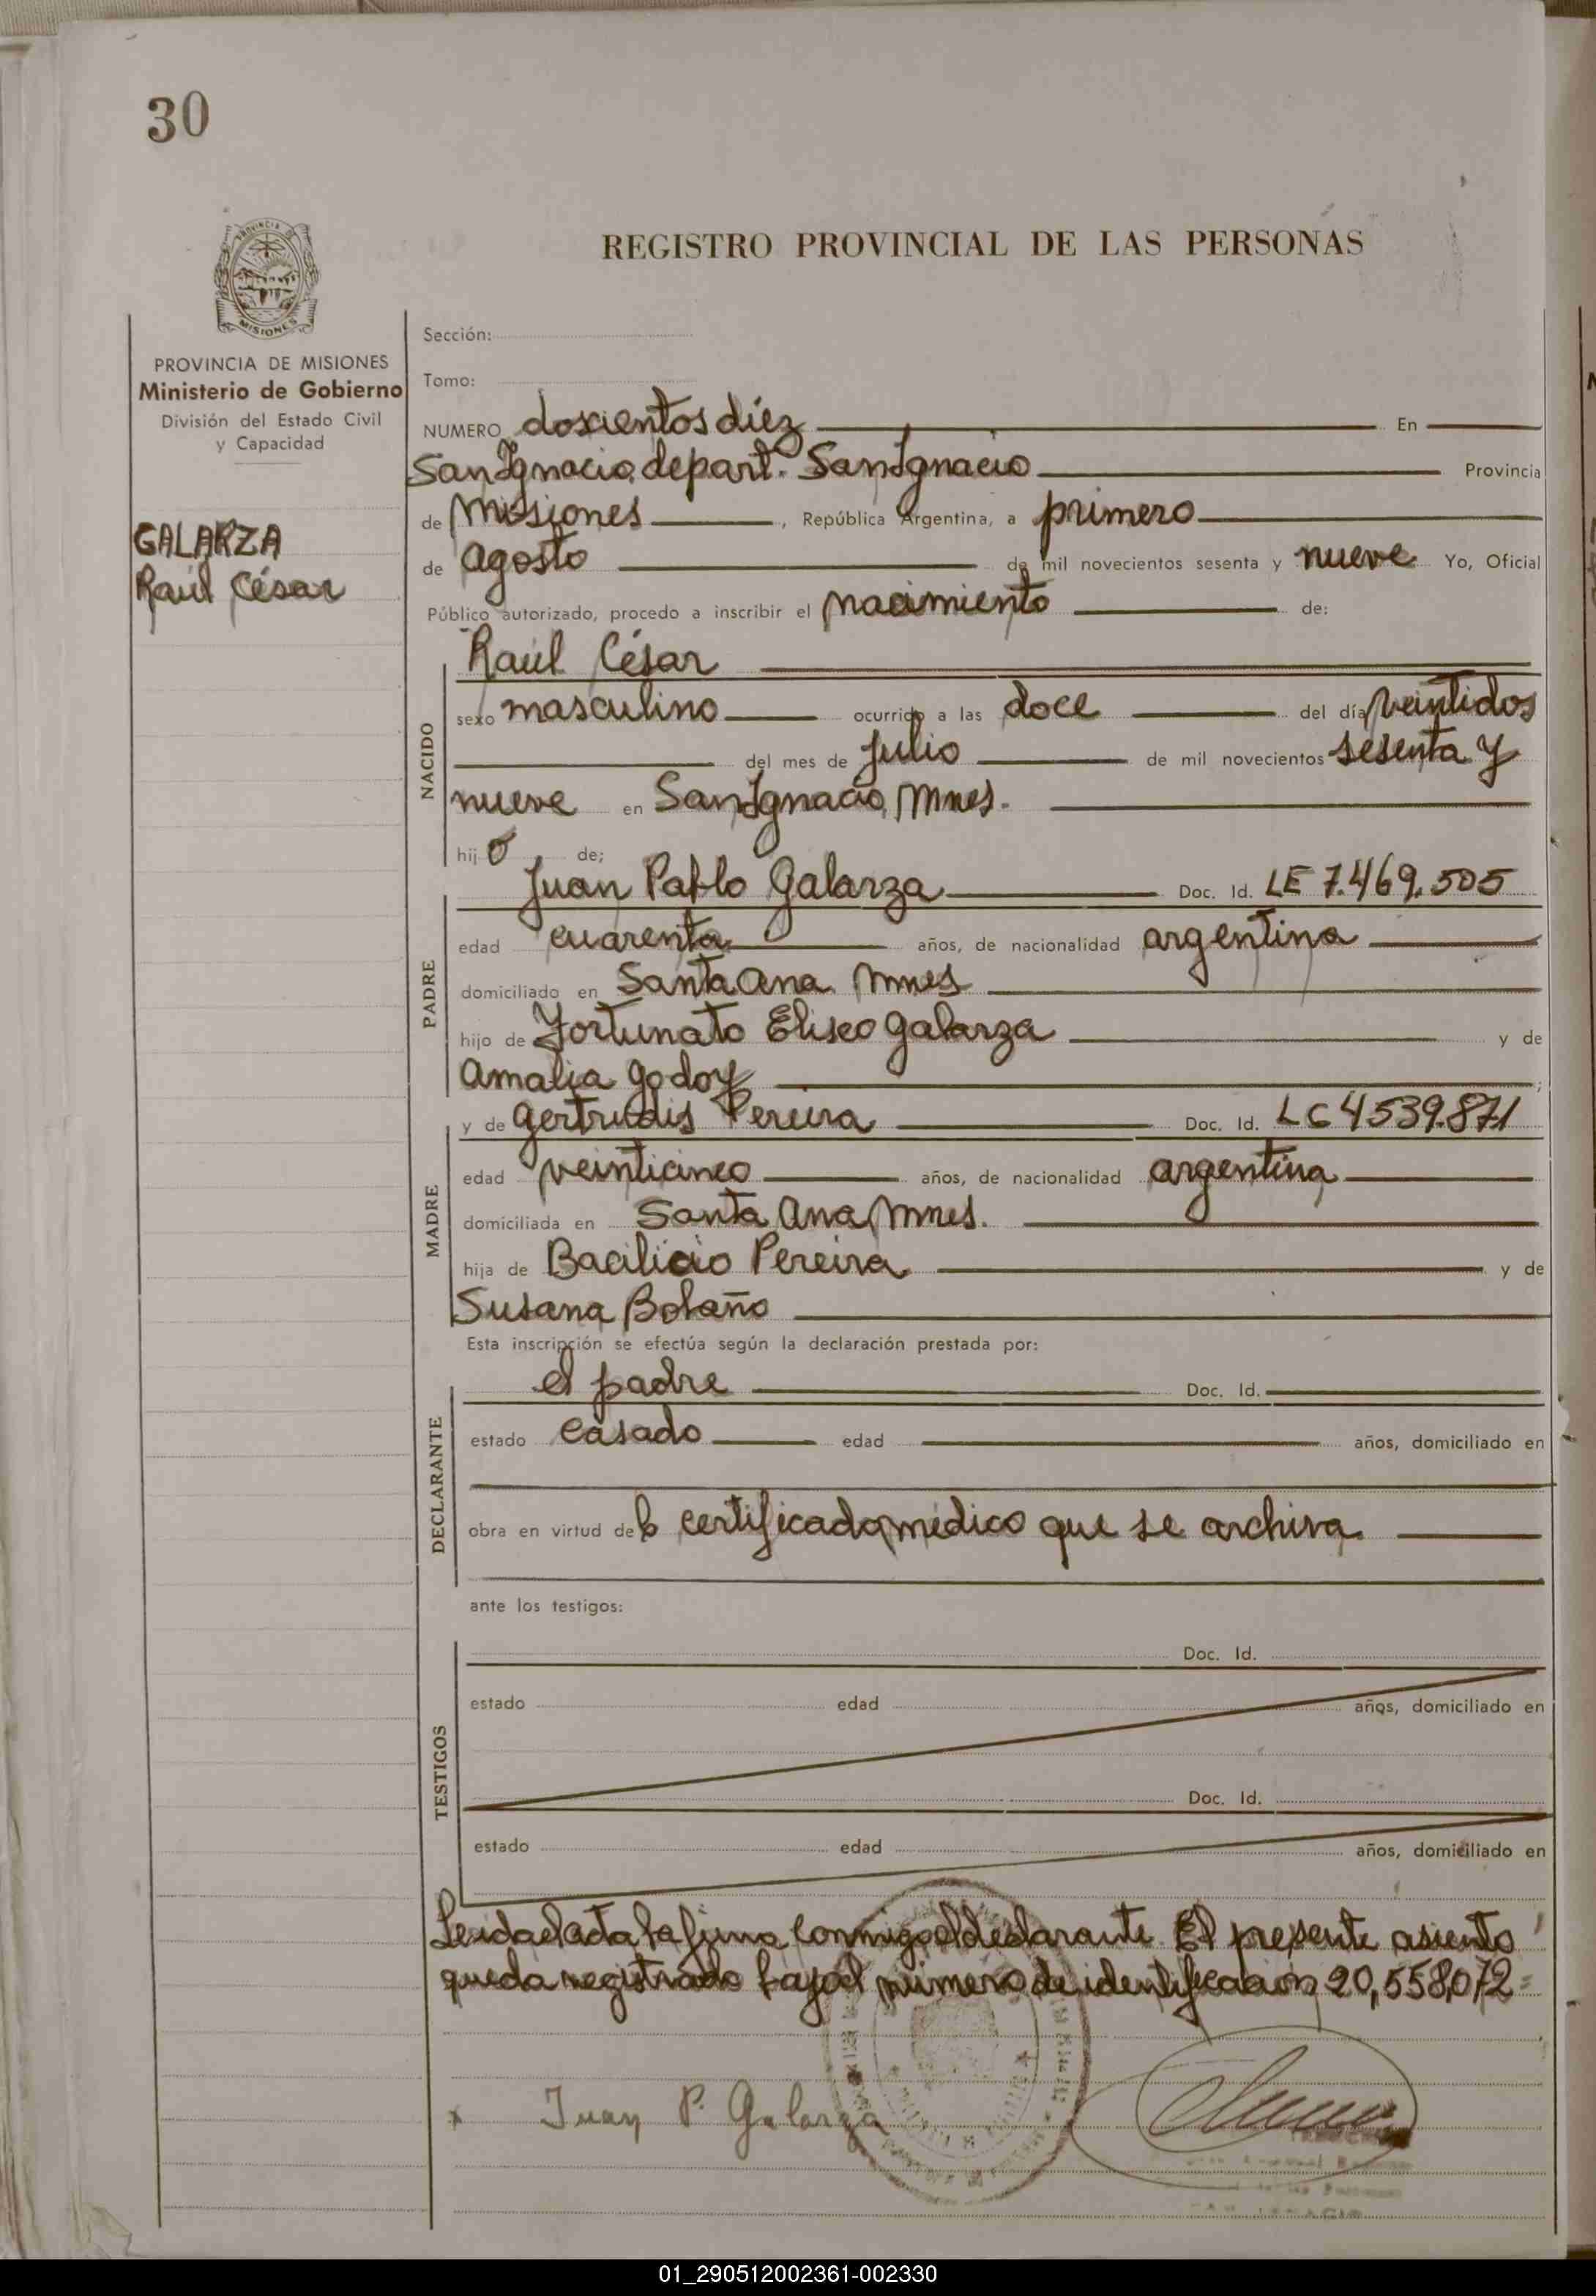 30
REGISTRO PROVINCIAL DE LAS PERSONAS
PROVINCIA DE
MISIONES
PROVINCIA DE MISIONES
Ministerio de Gobierno
División del Estado Civil
y Capacidad
GALARZA
Raúl César
Sección:
Tomo:
NUMERO doscientos diez En
San Ignacio, depart. San Ignacio Provincia
de Misiones, República Argentina, a primero
de agosto de mil novecientos sesenta y nueve Yo, Oficial
Público autorizado, procedo a inscribir el nacimiento de:
NACIDO
Raúl César
sexo masculino ocurrido a las doce del día veintidos
del mes de julio de mil novecientos sesenta y
nueve en San Ignacio, Mnes.
hijo de;
PADRE
Juan Pablo Galarza Doc. Id. LE 7.469.505
edad cuarenta años, de nacionalidad argentina
domiciliado en Santa Ana Mnes
hijo de Fortunato Eliseo Galarza y de
Amalia Godoy;
MADRE
y de Gertrudis Pereira Doc. Id. LC 4539.871
edad veinticinco años, de nacionalidad argentina
domiciliada en Santa Ana, Mnes.
hija de Bacilicio Pereira y de
Susana Bolaño
Esta inscripción se efectúa según la declaración prestada por:
DECLARANTE
el padre Doc. Id.
estado casado edad años, domiciliado en
obra en virtud de certificado médico que se archiva
ante los testigos:
TESTIGOS
Doc. Id.
estado edad años, domiciliado en
Doc. Id.
estado edad años, domiciliado en
Leida el acta la firma conmigo el declarante. El presente asiento
queda registrado bajo el número de identificación 20,558,072=
x Juan P. Galarza
01_290512002361-002330